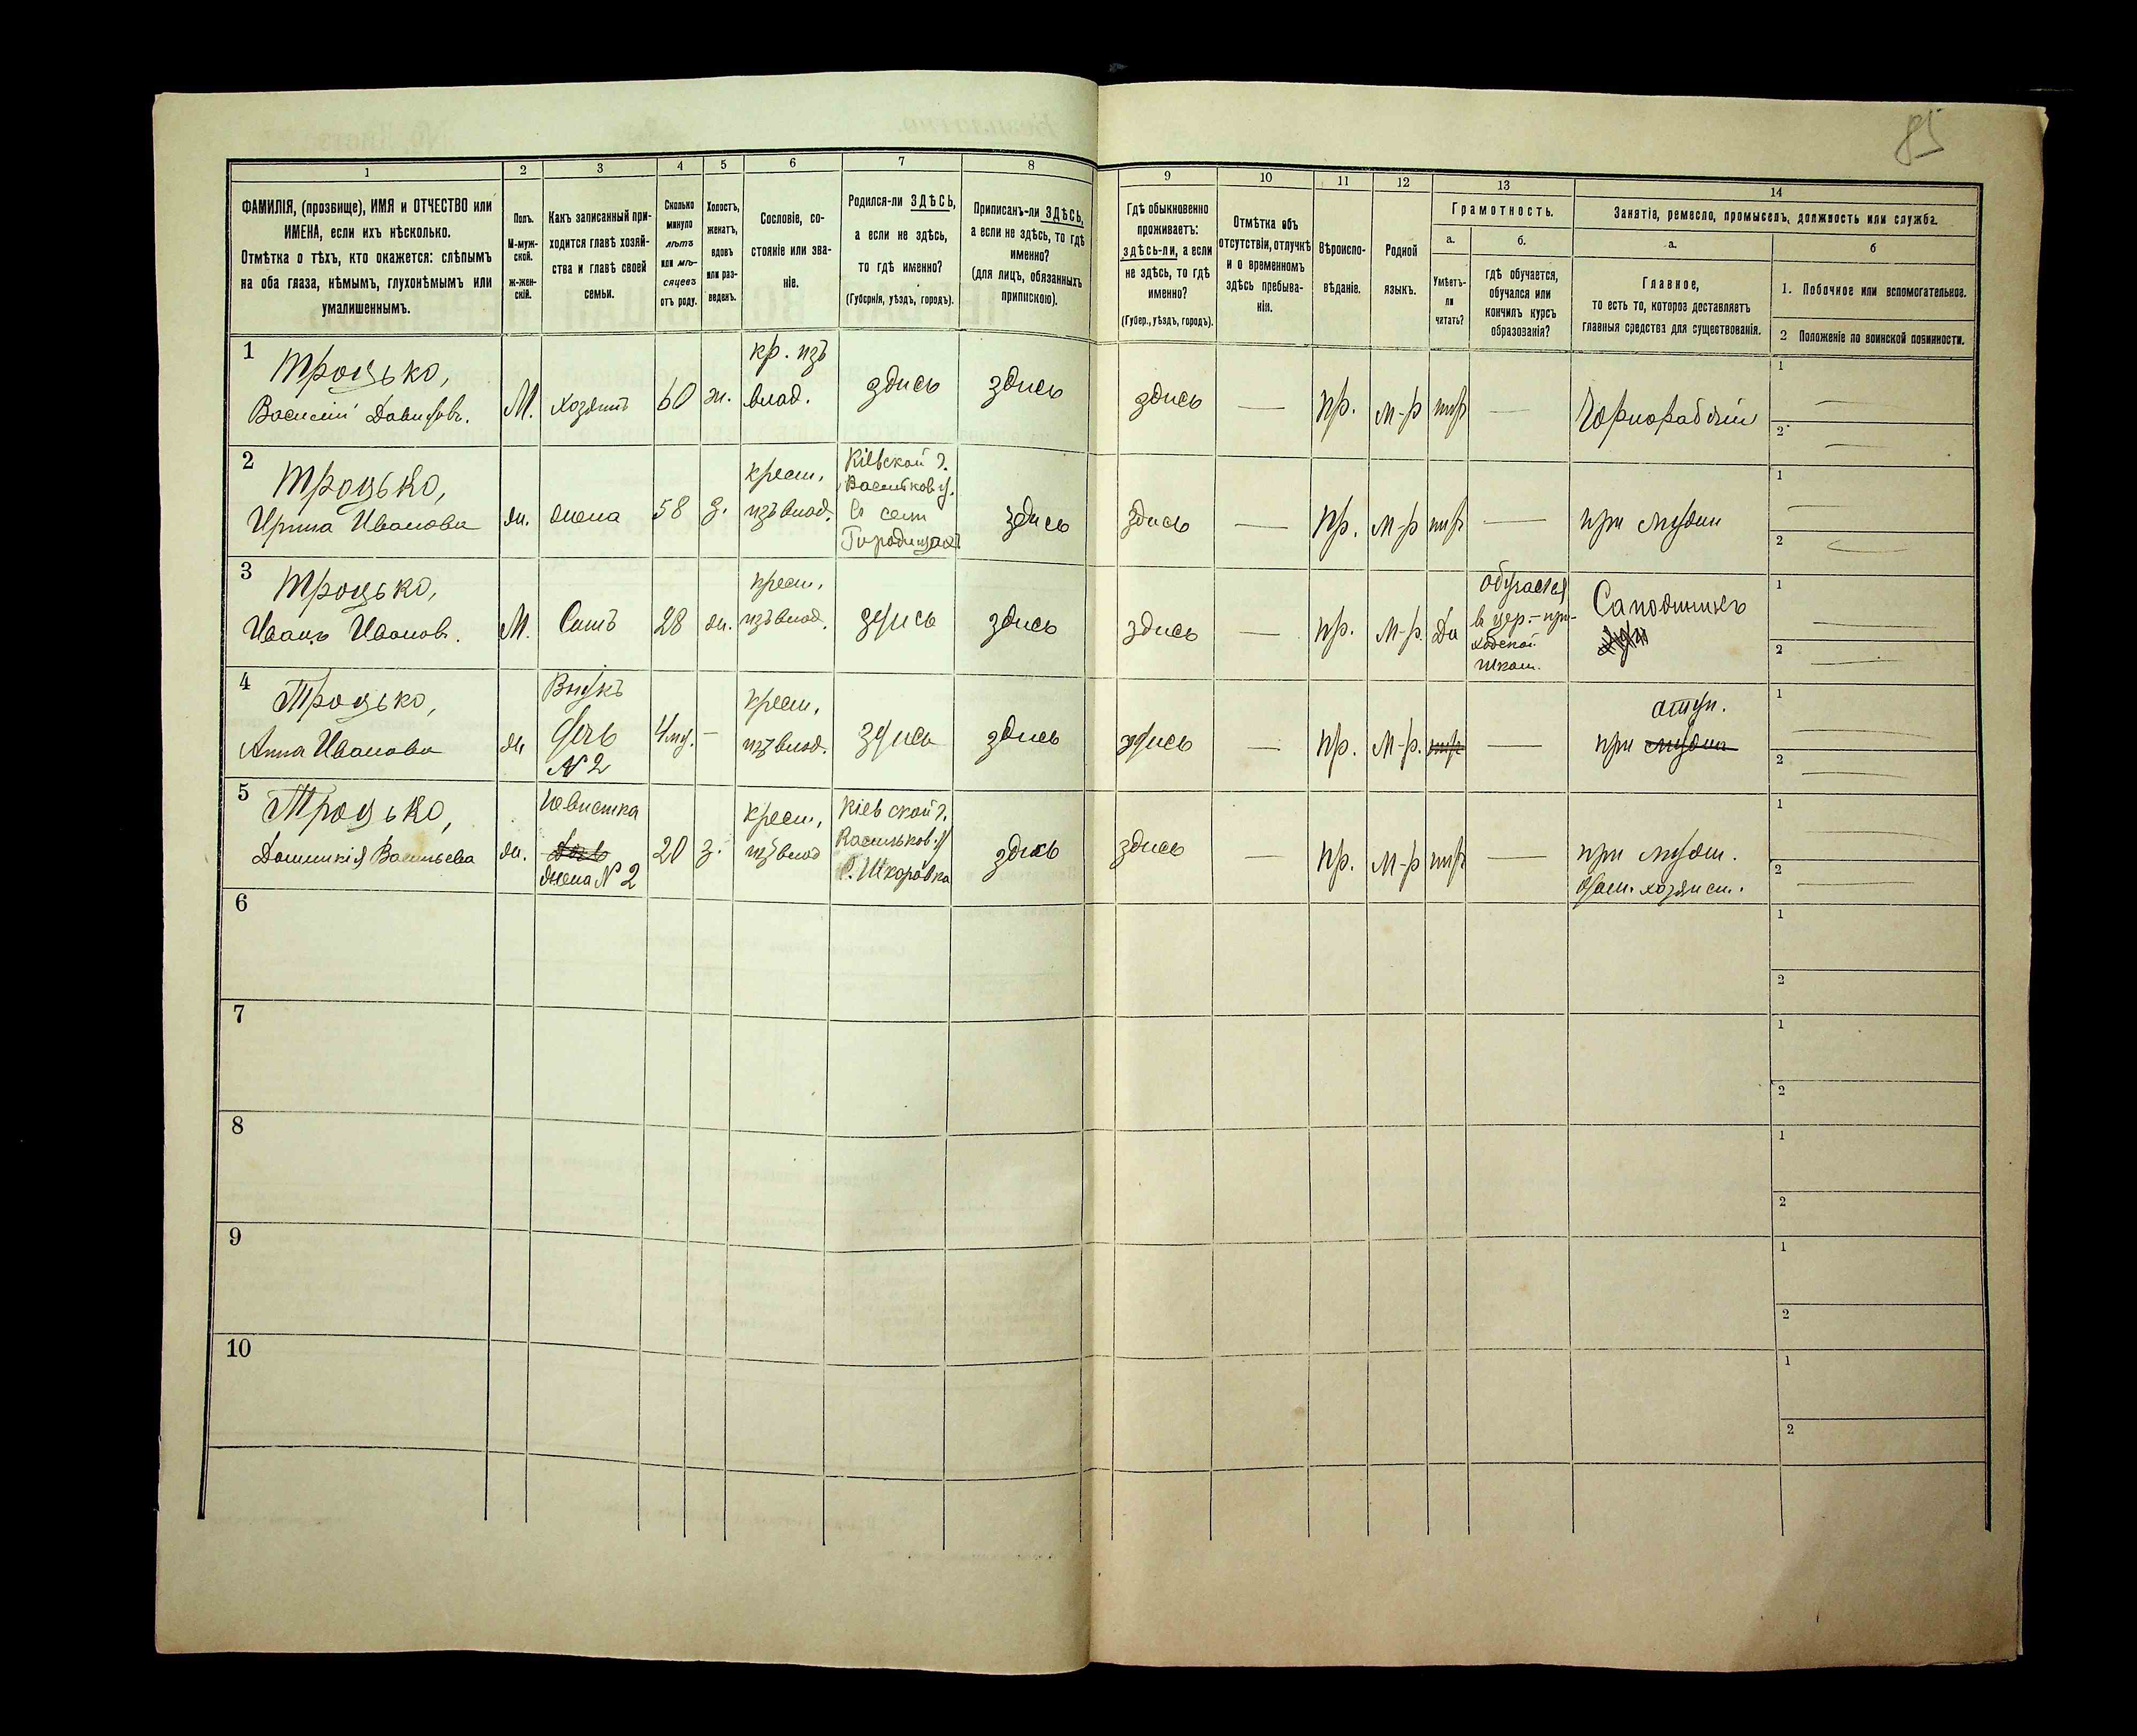 85
1
2
3
4
5
6
7
8
9
10
11
12
13
14
ФАМИЛІЯ, (прозвище), ИМЯ и ОТЧЕСТВО или
ИМЕНА, если ихъ нѣсколько.
Отмѣтка о тѣхъ, кто окажется: слѣпымъ
на оба глаза, нѣмымъ, глухонѣмымъ или
умалишеннымъ.
Полъ.
М-муж-
ской.
ж-жен-
скій.
Какъ записанный при-
ходится главѣ хозяй-
ства и главѣ своей
семьи.
Сколько
минуло
лѣтъ
или мѣ-
сяцевъ
отъ роду.
Холостъ,
женатъ,
вдовъ
или раз-
веденъ.
Сословіе, со-
стояніе или зва-
ніе.
Родился-ли ЗДѢСЬ,
а если не здѣсь,
то гдѣ именно?
(Губернія, уѣздъ, городъ).
Приписанъ-ли ЗДѢСЬ,
а если не здѣсь, то гдѣ
именно?
(для лицъ, обязанныхъ
припискою).
Гдѣ обыкновенно
проживаетъ:
здѣсь-ли, а если
не здѣсь, то гдѣ
именно?
(Губер., уѣздъ, городъ).
Отмѣтка объ
отсутствіи, отлучкѣ
и о временномъ
здѣсь пребыва-
ніи.
Вѣроиспо-
вѣданіе.
Родной
языкъ.
Грамотность.
а.
б.
Умѣетъ-
ли
читать?
гдѣ обучается,
обучался или
кончилъ курсъ
образованія?
Занятія, ремесло, промыселъ, должность или служба.
а.
б
Главное,
то есть то, которое доставляетъ
главныя средства для существованія.
1. Побочное или вспомогательное.
2 Положеніе по воинской повинности.
1
Троцько,
Василій Давидовъ.
М.
хозяинъ
60
ж.
кр. изъ
влад.
здись
здись
здись
—
пр.
м-р
—
Чернорабочій
1
—
2
—
2
Троцько,
Ирина Иванова
ж.
жена
58
з.
крест.
изъ влад.
Кіевской г.
Васильков. у.
въ сели
Городищахъ
здись
здись
—
пр.
м-р
—
при мужи
1
—
2
3
Троцько,
Иванъ Иванов.
М.
Сынъ
28
ж.
крест.
изъ влад.
здись
здись
здись
—
пр.
м-р.
Да
обучался
в цер.-при-
ходской
школ.
Сапожникъ
1
—
2
—
4
Троцько,
Анна Иванова
ж
Внук
дочь
№ 2
—
крест.
изъ влад.
здись
здись
здись
—
пр.
м-р.
—
при мужи
1
—
2
—
5
Троцько,
Домникія Васильева
ж.
Невистка
жена № 2
20
з.
крест.
изъ влад
Кіевской г.
Васильков. у
с. Шкоровка
здись
здись
—
пр.
м-р
—
при мужи.
дом. хозяист.
1
—
2
—
6
1
2
7
1
2
8
1
2
9
1
2
10
1
2